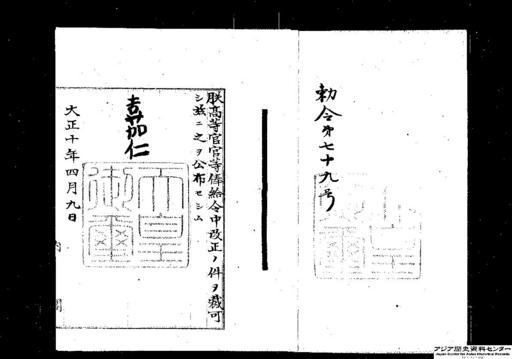 勅令第七十九号
朕高等官官等俸給令中改正ノ件ヲ裁可
シ玆ニ之ヲ公布セシム
嘉仁
天皇
御璽
大正十年四月九日
内閣
アジア歴史資料センター
Japan Center for Asian Historical Records